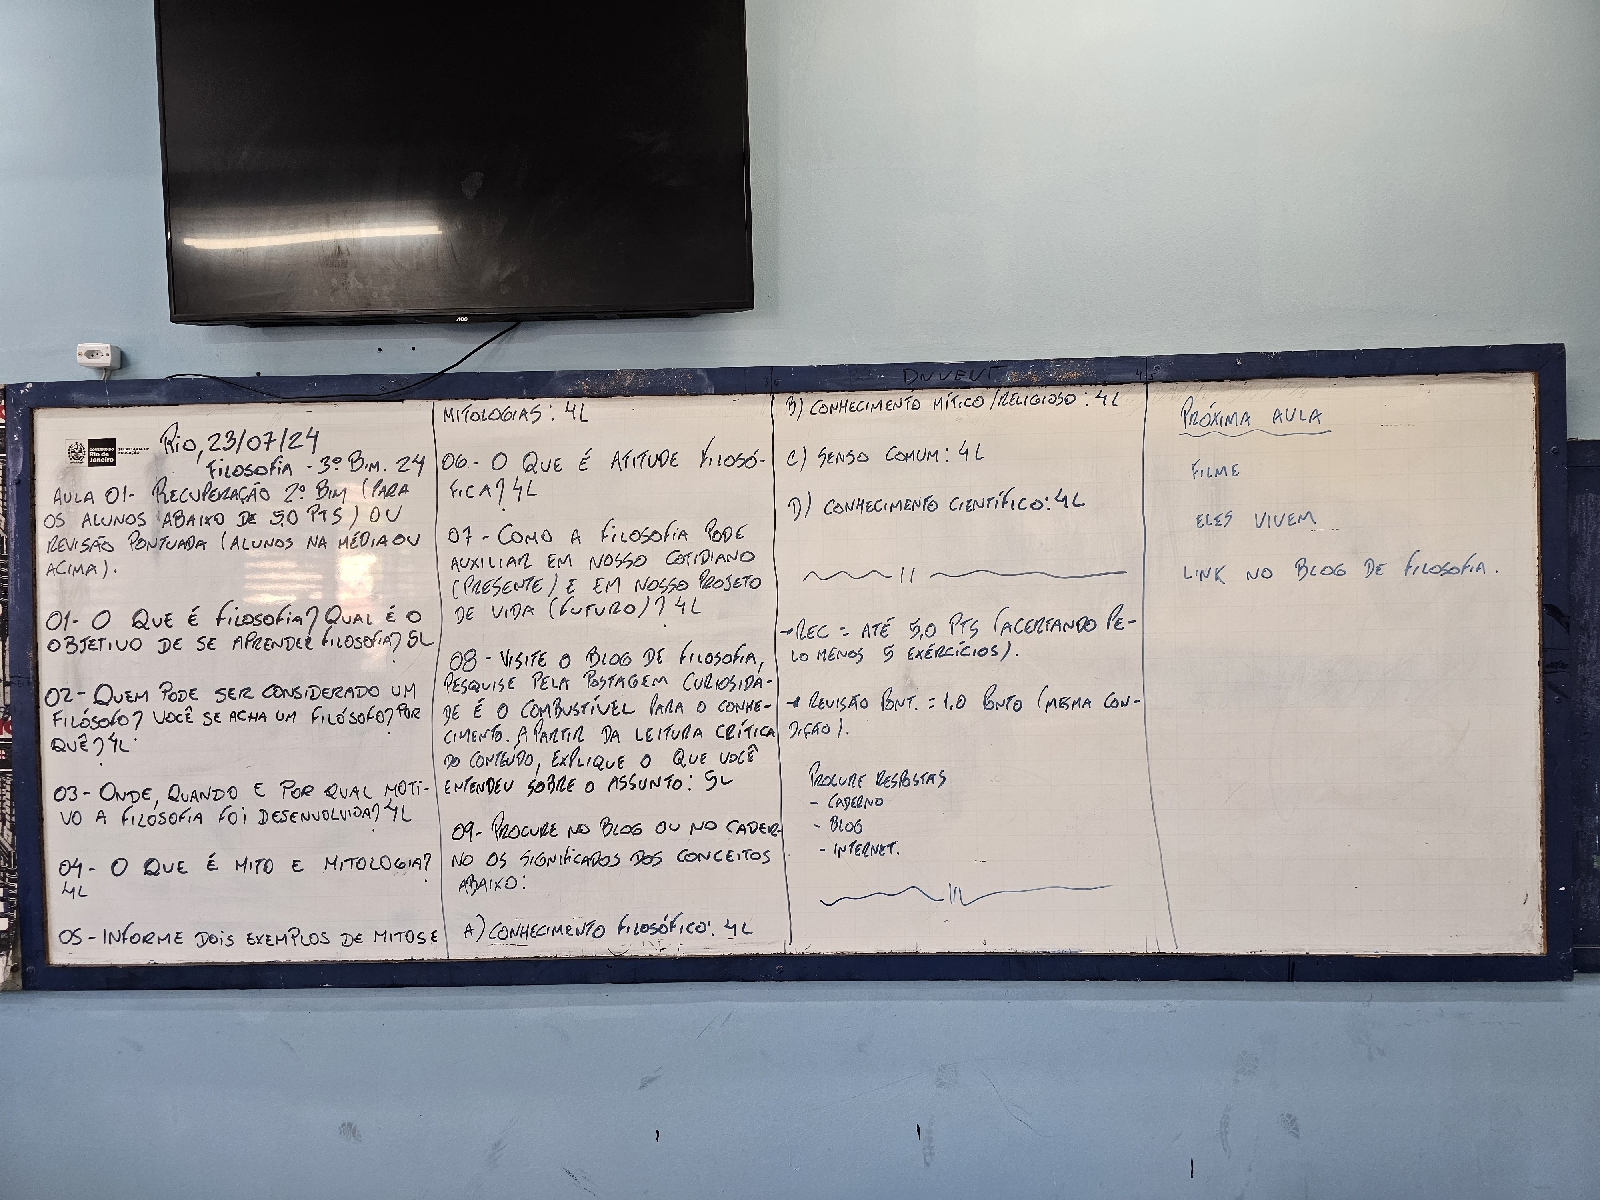 Rio, 23/07/24
FILOSOFIA - 3º BIM. 24
AULA 01- RECUPERAÇÃO 2º BIM (PARA
OS ALUNOS ABAIXO DE 5,0 PTS) OU
REVISÃO PONTUADA (ALUNOS NA MÉDIA OU
ACIMA).
01- O QUE É FILOSOFIA? QUAL É O
OBJETIVO DE SE APRENDER FILOSOFIA? 5L
02- QUEM PODE SER CONSIDERADO UM
FILÓSOFO? VOCÊ SE ACHA UM FILÓSOFO? POR
QUÊ? 4L
03- ONDE, QUANDO E POR QUAL MOTI-
VO A FILOSOFIA FOI DESENVOLVIDA? 4L
04- O QUE É MITO E MITOLOGIA?
4L
05- INFORME DOIS EXEMPLOS DE MITOS E
MITOLOGIAS: 4L
06- O QUE É ATITUDE FILOSÓ-
FICA? 4L
07- COMO A FILOSOFIA PODE
AUXILIAR EM NOSSO COTIDIANO
(PRESENTE) E EM NOSSO PROJETO
DE VIDA (FUTURO)? 4L
08- VISITE O BLOG DE FILOSOFIA,
PESQUISE PELA POSTAGEM CURIOSIDA-
DE É O COMBUSTÍVEL PARA O CONHE-
CIMENTO. A PARTIR DA LEITURA CRÍTICA
DO CONTEÚDO, EXPLIQUE O QUE VOCÊ
ENTENDEU SOBRE O ASSUNTO: 5L
09- PROCURE NO BLOG OU NO CADER-
NO OS SIGNIFICADOS DOS CONCEITOS
ABAIXO:
A) CONHECIMENTO FILOSÓFICO: 4L
B) CONHECIMENTO MÍTICO/RELIGIOSO: 4L
C) SENSO COMUM: 4L
D) CONHECIMENTO CIENTÍFICO: 4L
→REC = ATÉ 5,0 PTS (ACERTANDO PE-
LO MENOS 5 EXÉRCÍCIOS).
→ REVISÃO PONT. = 1,0 PONTO (MESMA CON-
DIÇÃO).
PROCURE RESPOSTAS
- CADERNO
- BLOG
- INTERNET.
PRÓXIMA AULA
FILME
ELES VIVEM
LINK NO BLOG DE FILOSOFIA.